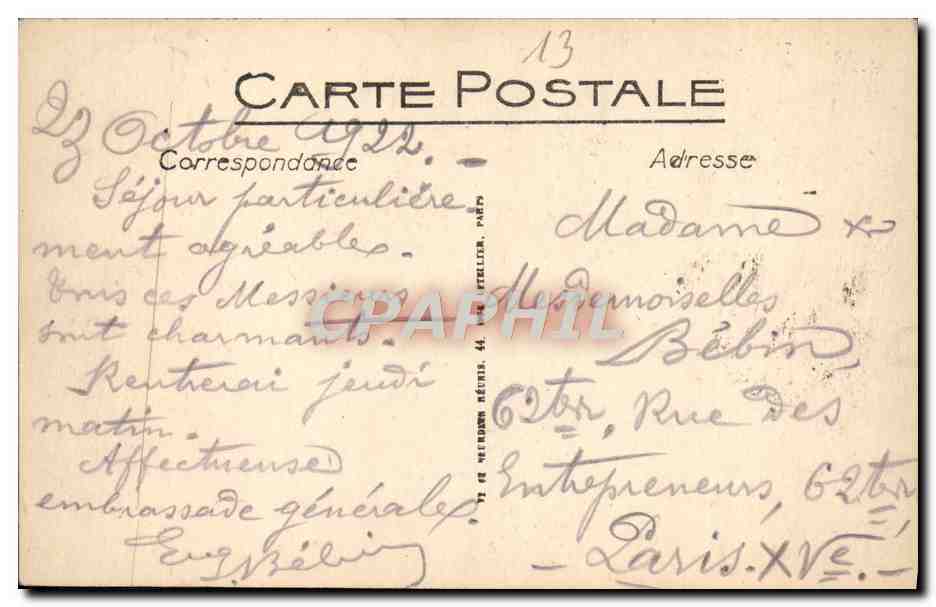 13
CARTE POSTALE
23 Octobre 1922. -
Correspondance
Séjour particulière-
ment agréable.
Tous ces Messieurs
sont charmants.
Rentrerai jeudi
matin.
Affectueuse
embrassade générale
Eug. Bébin
RÉUNIS, 44, LETELLIER, PARIS
Adresse
Madame &
Mesdemoiselles
Bébin,
62ter, Rue des
Entrepreneurs, 62ter,
- Paris. XVe. -
CPAPHIL